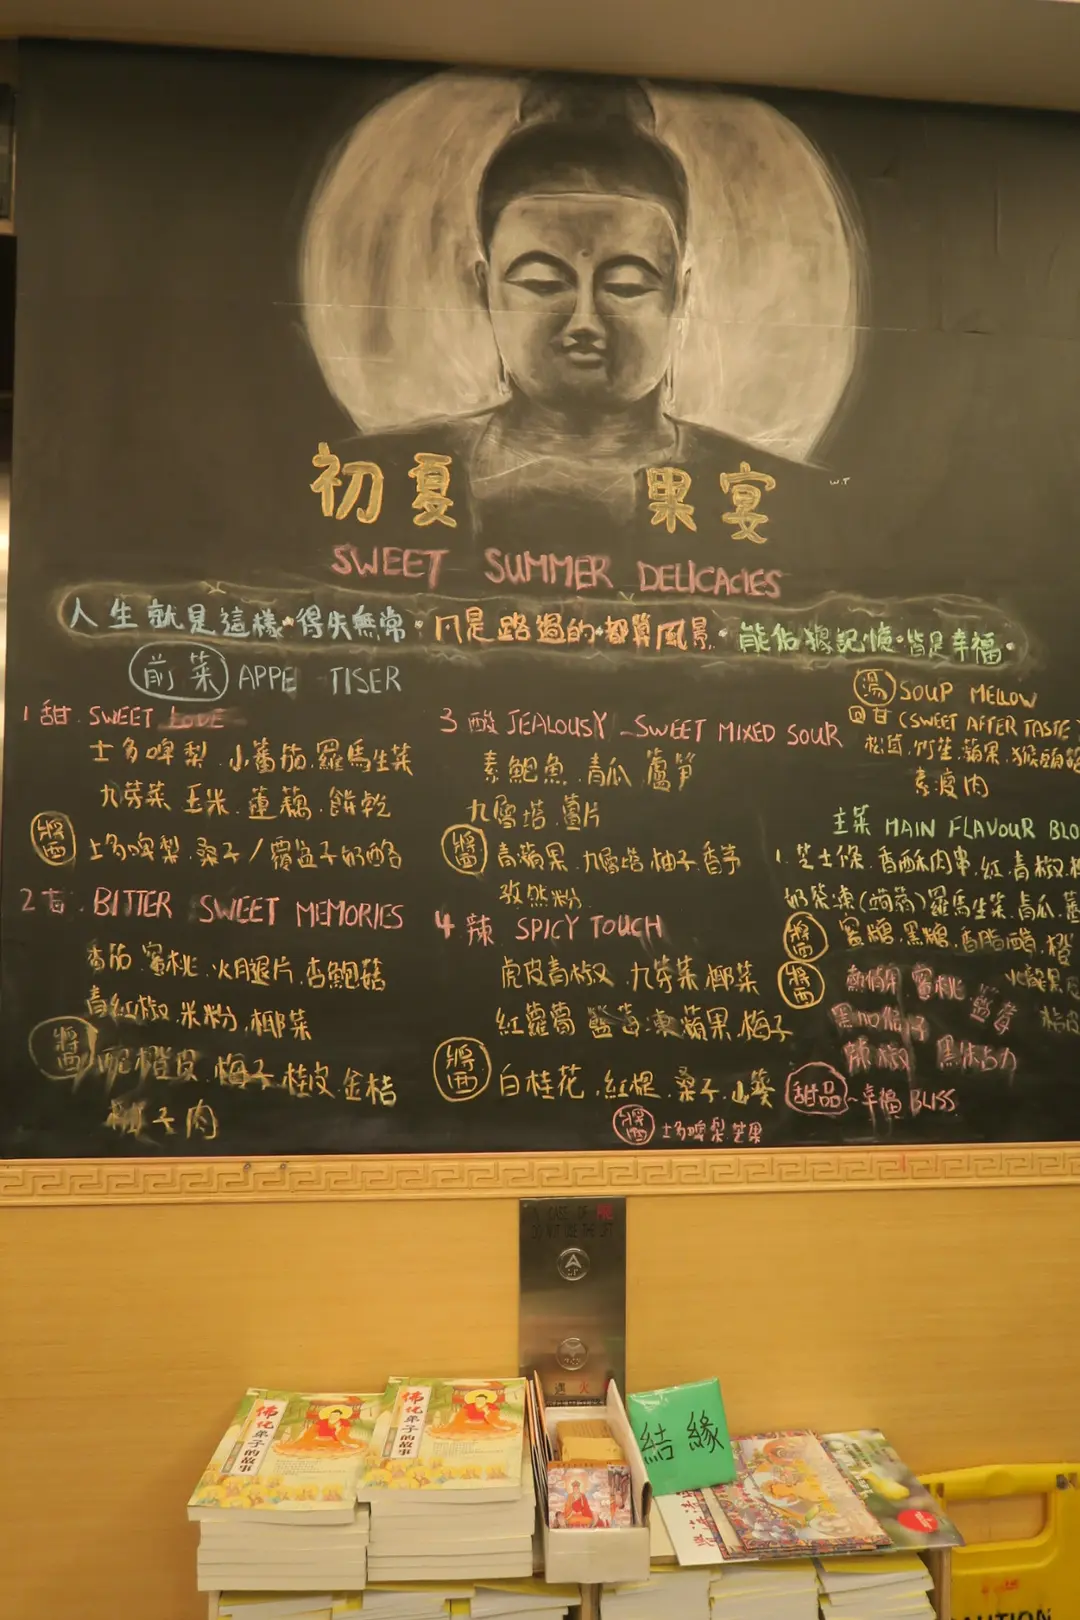 初夏 果宴
W.T
SWEET SUMMER DELICACIES
人生就是這樣·得失無常·凡是路過的·都算風景·能佔據記憶·皆是幸福·
前菜 APPE TISER
1 甜. SWEET LOVE
士多啤梨.小番茄.羅馬生菜
九芽菜.玉米.蓮藕.餅乾
醬 士多啤梨.桑子/覆盆子奶酪
2 苦. BITTER SWEET MEMORIES
番茄.蜜桃.火腿片.杏鮑菇
青紅椒.米粉.椰菜
醬 橙皮.梅子.桂皮.金桔
椰子肉
3 酸 JEALOUSY _ SWEET MIXED SOUR
素鮑魚.青瓜.蘆笋
九層塔.薑片
醬 青蘋果.九層塔.柚子.香芋
孜然粉
4. 辣 SPICY TOUCH
虎皮青椒.九芽菜.椰菜
紅蘿蔔.藍莓.凍蘋果.梅子
醬 白桂花.紅棍.桑子.山葵
醬 士多啤梨.芒果
湯 SOUP MELLOW
回甘(SWEET AFTER TASTE)
松茸.竹笙.蘋果.猴頭菇
素瘦肉
主菜 MAIN FLAVOUR BLO
1. 芝士條.香酥肉串.紅.青椒
奶茶凍(蒟蒻)羅馬生菜.青瓜
醬 蜜糖.黑糖.香脂醋.橙
醬 蜜桃.藍莓
黑加侖子
辣椒 黑朱古力
甜品 ~ 幸福 BLISS
IN CASE OF FIRE
DO NOT USE THE LIFT
遇 火
佛化弟子的故事
佛化弟子的故事
結緣
CAUTION